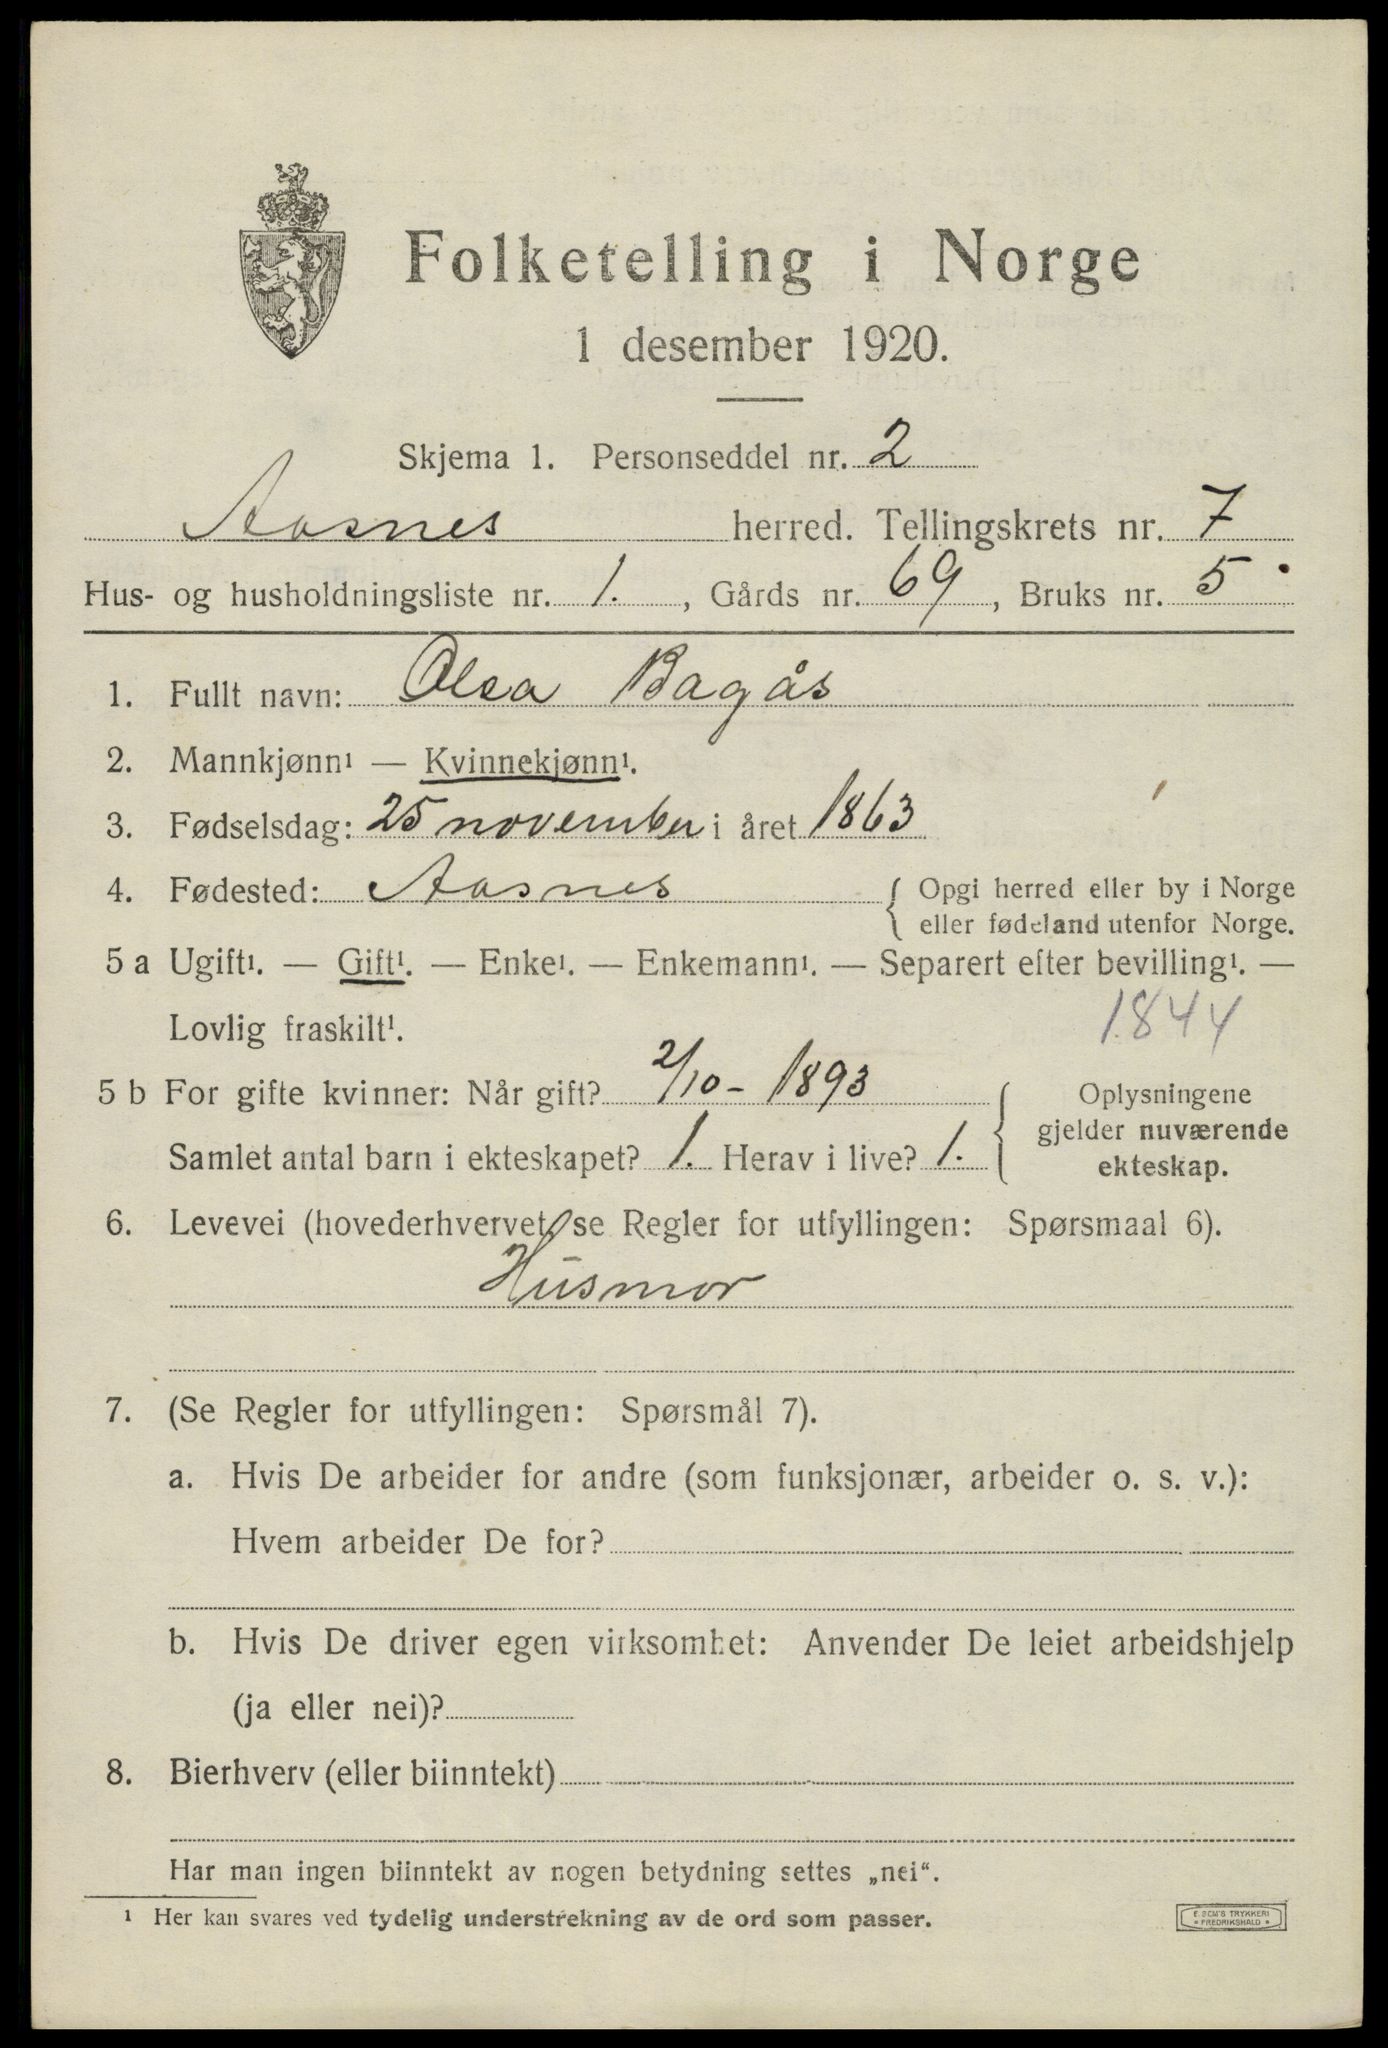 Folketelling i Norge
1 desember 1920.
Skjema 1. Personseddel nr. 2
Aasnes herred. Tellingskrets nr. 7
Hus- og husholdningsliste nr. 1. , Gårds nr. 69 , Bruks nr. 5
1. Fullt navn: Olea Bagås
2. Mannkjønn¹ — Kvinnekjønn¹.
3. Fødselsdag: 25 november i året 1863
4. Fødested: Aasnes { Opgi herred eller by i Norge
eller fødeland utenfor Norge.
5 a Ugift¹. — Gift¹. — Enke¹. — Enkemann¹. — Separert efter bevilling¹. —
Lovlig fraskilt¹. 1844
5 b For gifte kvinner: Når gift? 2/10 - 1893
Samlet antal barn i ekteskapet? 1. Herav i live? 1. { Oplysningene
gjelder nuværende
ekteskap.
6. Levevei (hovederhvervet, se Regler for utfyllingen: Spørsmaal 6).
Husmor
7. (Se Regler for utfyllingen: Spørsmål 7).
a. Hvis De arbeider for andre (som funksjonær, arbeider o. s. v.):
Hvem arbeider De for?
b. Hvis De driver egen virksomhet: Anvender De leiet arbeidshjelp
(ja eller nei)?
8. Bierhverv (eller biinntekt)
Har man ingen biinntekt av nogen betydning settes „nei“.
¹ Her kan svares ved tydelig understrekning av de ord som passer.
E. SEM'S TRYKKERI
• FREDRIKSHALD •